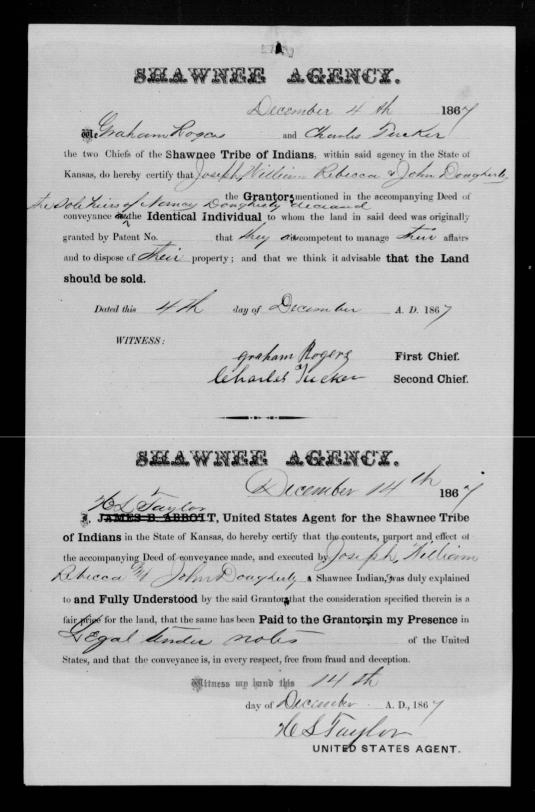 SHAWNEE AGENCY.
December 4th 1867
We Graham Rogers and Charles Tucker
the two Chiefs of the Shawnee Tribe of Indians, within said agency in the State of
Kansas, do hereby certify that Joseph, William Rebecca & John Dougherty
the Sole heirs of Nancy Dougherty deceased the Grantors mentioned in the accompanying Deed of
conveyance are the Identical Individual to whom the land in said deed was originally
granted by Patent No. that they are competent to manage their affairs
and to dispose of their property; and that we think it advisable that the Land
should be sold.
Dated this 4th day of December A. D. 1867
WITNESS:
Graham Rogers First Chief.
Charles Tucker Second Chief.
SHAWNEE AGENCY.
December 14th 1867
H L Taylor
I, JAMES B. ABBOTT, United States Agent for the Shawnee Tribe
of Indians in the State of Kansas, do hereby certify that the contents, purport and effect of
the accompanying Deed of conveyance made, and executed by Joseph, William
Rebecca & John Dougherty a Shawnee Indian, was duly explained
to and Fully Understood by the said Grantor that the consideration specified therein is a
fair price for the land, that the same has been Paid to the Grantors in my Presence in
Legal tender notes of the United
States, and that the conveyance is, in every respect, free from fraud and deception.
Witness my hand this 14th
day of December A. D., 1867
H L Taylor
UNITED STATES AGENT.